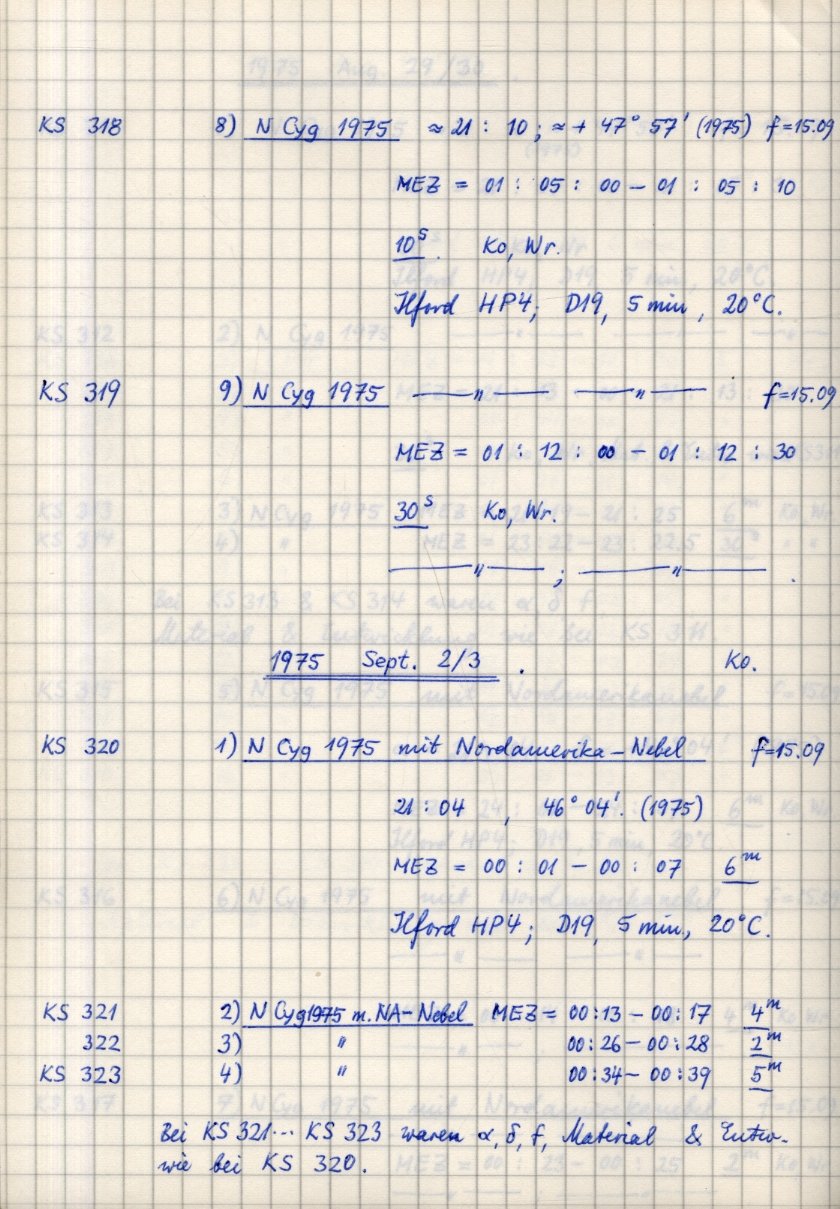 KS 318 8) N Cyg 1975 ≈ 21 : 10 ; ≈ + 47° 57' (1975) f=15.09
MEZ = 01 : 05 : 00 – 01 : 05 : 10
10ˢ. Ko, Wr.
Ilford HP4; D19, 5 min, 20°C.
KS 319 9) N Cyg 1975 —〃— —〃— f=15.09
MEZ = 01 : 12 : 00 – 01 : 12 : 30
30ˢ Ko, Wr.
—〃— ; —〃— .
1975 Sept. 2/3 . Ko.
KS 320 1) N Cyg 1975 mit Nordamerika-Nebel f=15.09
21 : 04 , 46° 04'. (1975)
MEZ = 00 : 01 – 00 : 07 6ᵐ
Ilford HP4; D19, 5 min., 20°C.
KS 321 2) N Cyg 1975 m. NA-Nebel MEZ = 00:13 – 00:17 4ᵐ
322 3) 〃 00:26 – 00:28 2ᵐ
KS 323 4) 〃 00:34 – 00:39 5ᵐ
Bei KS 321... KS 323 waren α, δ, f, Material & Entw.
wie bei KS 320.